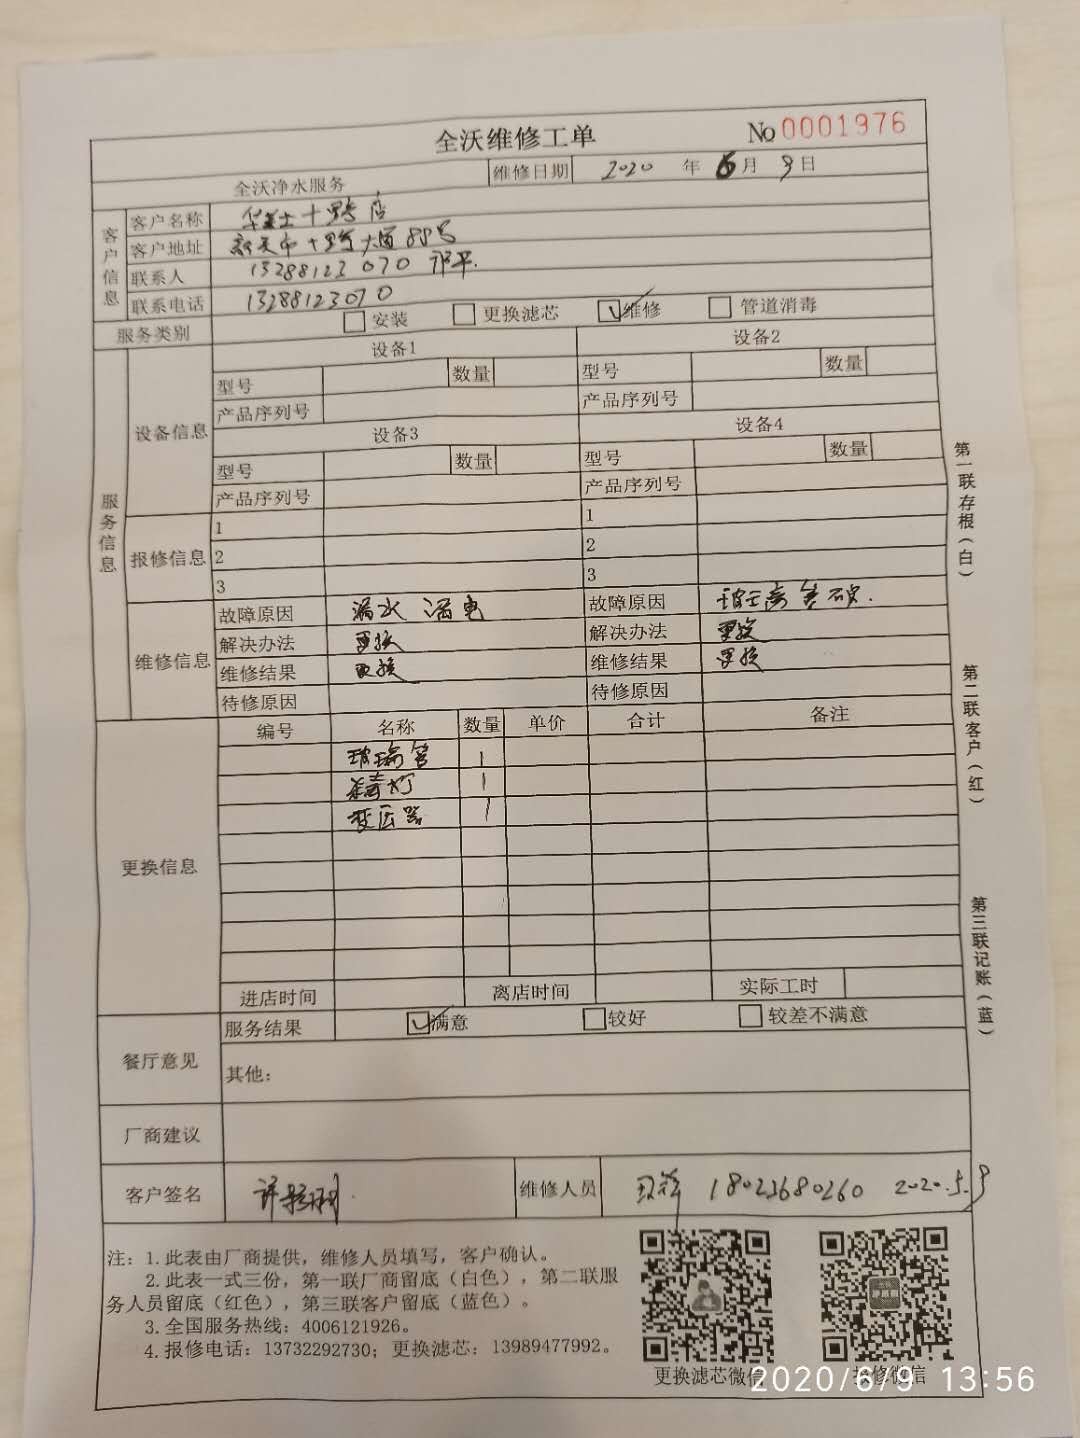 全沃维修工单 No 0001976
全沃净水服务 维修日期 2020 年 6 月 9 日
客户信息
客户名称 华莱士十 店
客户地址 大道88号
联系人 13288123070 平.
联系电话 13288123070
服务类别 安装 更换滤芯 维修 管道消毒
服务信息
设备信息
设备1 设备2
型号 数量 型号 数量
产品序列号 产品序列号
设备3 设备4
型号 数量 型号 数量
产品序列号 产品序列号
报修信息
1 1
2 2
3 3
维修信息
故障原因 漏水 漏电 故障原因 玻璃管破.
解决办法 更换 解决办法 更换
维修结果 更换 维修结果 更换
待修原因 待修原因
更换信息
编号 名称 数量 单价 合计 备注
玻璃管 1
杀毒灯 1
变压器 1
进店时间 离店时间 实际工时
餐厅意见
服务结果 满意 较好 较差不满意
其他：
厂商建议
客户签名 维修人员 18023680260 2020.5.9
注：1.此表由厂商提供，维修人员填写，客户确认。
2.此表一式三份，第一联厂商留底（白色），第二联服
务人员留底（红色），第三联客户留底（蓝色）。
3.全国服务热线：4006121926。
4.报修电话：13732292730；更换滤芯：13989477992。
更换滤芯微信 报修微信
第一联存根（白）
第二联客户（红）
第三联记账（蓝）
2020/6/9 13:56